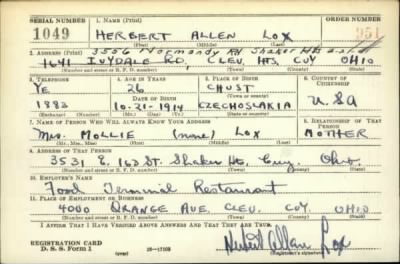 SERIAL NUMBER 1. NAME (Print) ORDER NUMBER
1049 HERBERT ALLEN LOX 951
(First) (Middle) (Last)
3556 Normandy Rd Shaker Hts
2. ADDRESS (Print)
1641 IVYDALE RD. CLEV. HTS. CUY OHIO
(Number and street or R. F. D. number) (Town) (County) (State)
3. TELEPHONE 4. AGE IN YEARS 5. PLACE OF BIRTH 6. COUNTRY OF CITIZENSHIP
YE 26 CHUST
DATE OF BIRTH (Town or county)
1883 10-21-1914 CZECHOSLAKIA U.S.A
(Exchange) (Number) (Mo.) (Day) (Yr.) (State or country)
7. NAME OF PERSON WHO WILL ALWAYS KNOW YOUR ADDRESS 8. RELATIONSHIP OF THAT PERSON
Mrs. MOLLIE (none) LOX MOTHER
(Mr., Mrs., Miss) (First) (Middle) (Last)
9. ADDRESS OF THAT PERSON
3531 E. 163 St. Shaker Hts. Cuy. Ohio
(Number and street or R. F. D. number) (Town) (County) (State)
10. EMPLOYER'S NAME
Food Terminal Restaurant
11. PLACE OF EMPLOYMENT OR BUSINESS
4000 ORANGE AVE. CLEV. CUY. OHIO
(Number and street or R. F. D. number) (Town) (County) (State)
I AFFIRM THAT I HAVE VERIFIED ABOVE ANSWERS AND THAT THEY ARE TRUE.
REGISTRATION CARD
D. S. S. Form 1 16-17105 Herbert Allen Lox
(Registrant's signature)